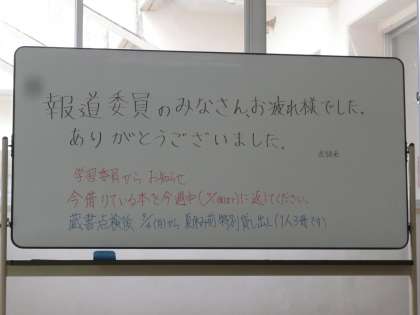 報道委員のみなさん、お疲れ様でした。
ありがとうございました。
学習委員から お知らせ
今借りている本を今週中(まで)に返してください。
蔵書点検後 から 夏休み前特別貸し出し(1人3冊です)